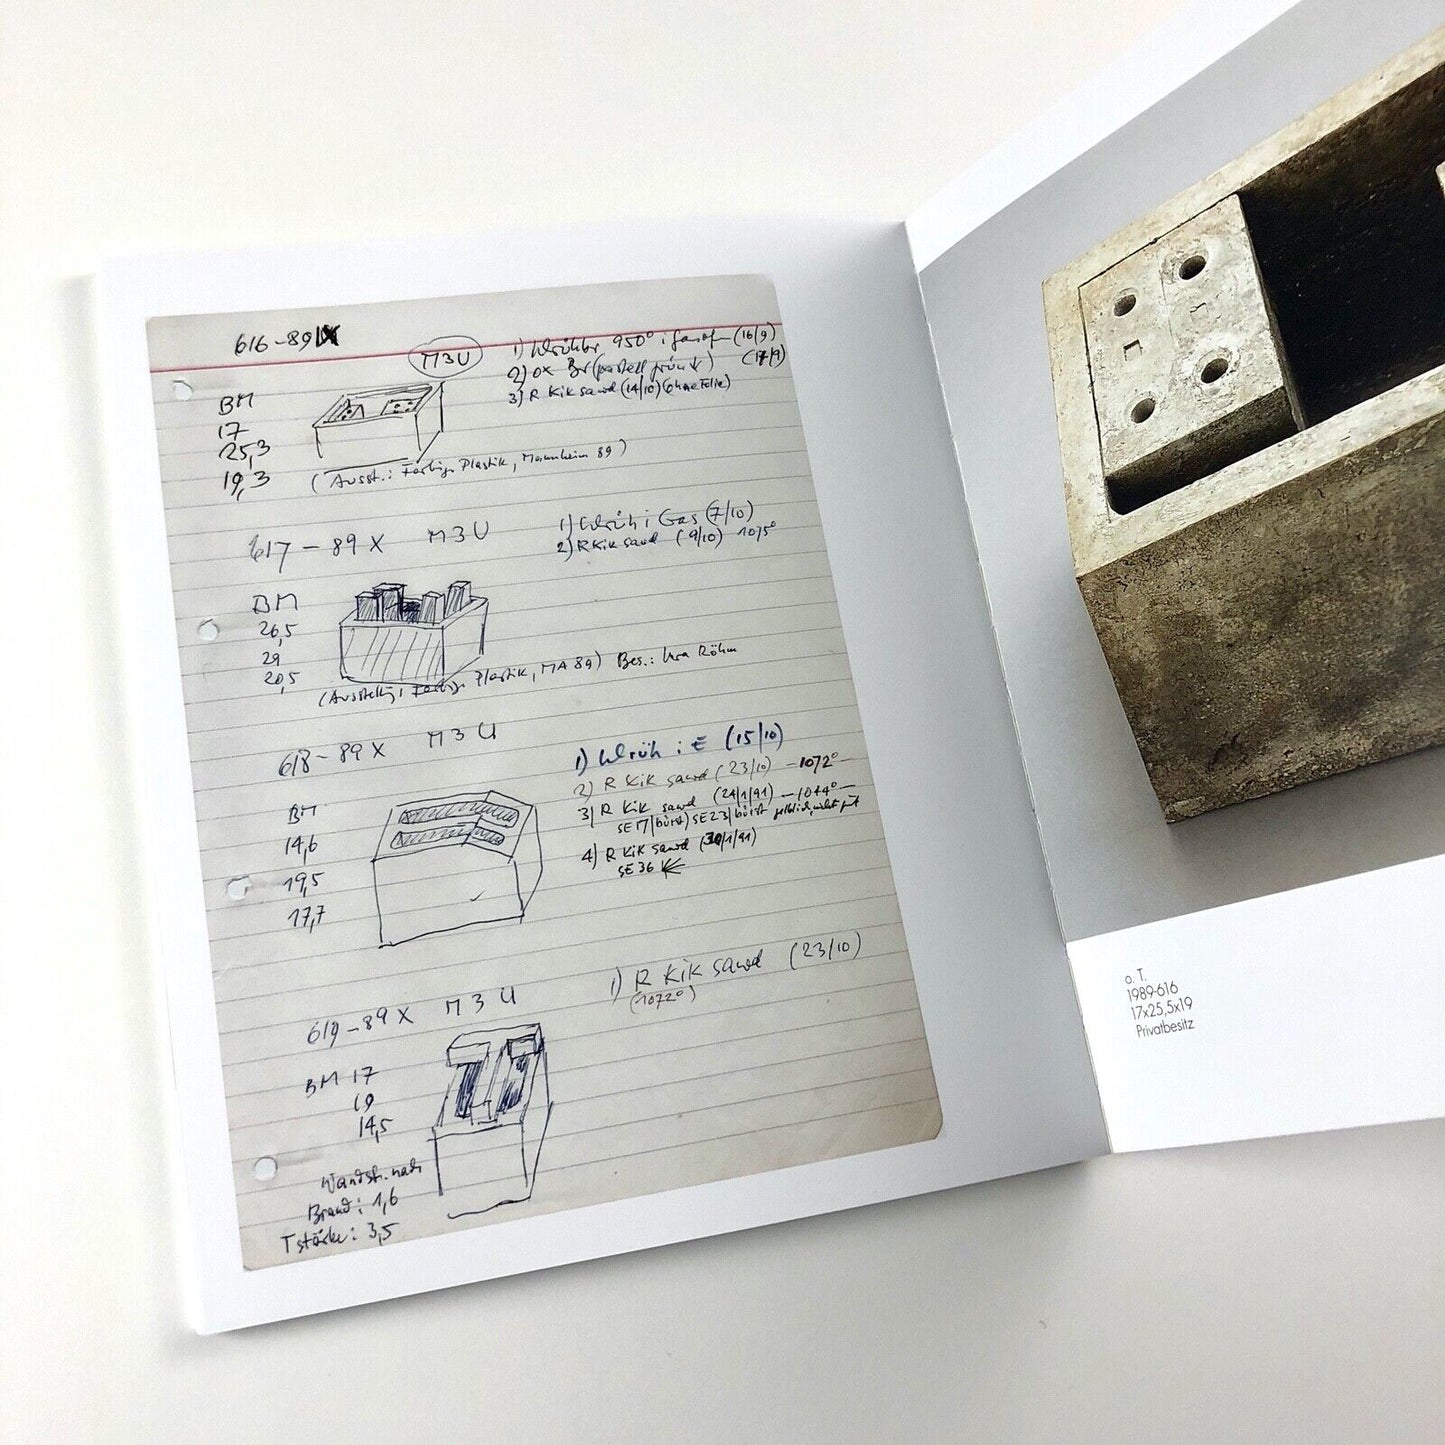 616-89IX
M3U
1) 950° (16/9)
2) ox (pastell grün) (17/9)
3) R Kik sawd (14/10) (ohne Folie)
BM
17
25,3
19,3
(Ausst.: Farbige Plastik, Mannheim 89)
617-89X M3U
1) i Gas (7/10)
2) R Kik sawd (9/10) 1075°
BM
26,5
29
20,5
(Ausstellg: Farbige Plastik, MA 89) Bes.: Röhm
618-89X M3U
1) i E (15/10)
2) R Kik sawd (23/10) -1072°
3) R Kik sawd (29/1/91) -1044°-
SE17 (bürst) SE23/bürst gelblich, nicht gut
4) R Kik sawd (30/1/91)
SE36
BM
14,6
19,5
17,7
619-89X M3U
1) R Kik sawd (23/10)
(1072°)
BM 17
19
14,5
Wandst. nach
Brand: 1,6
Tstärke: 3,5
o. T.
1989-616
17x25,5x19
Privatbesitz